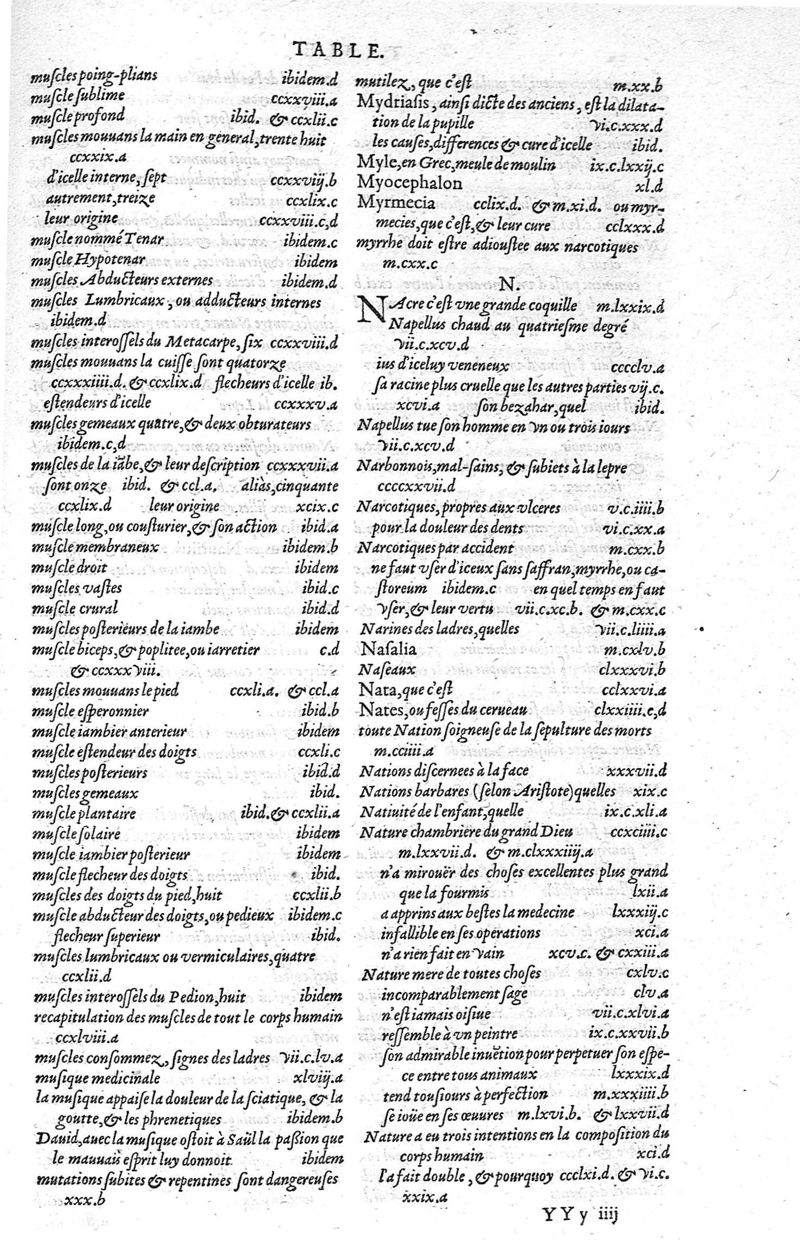 TABLE.
muſcles poing-plians ibidem.d
muſcle ſublime ccxxviii.a
muſcle profond ibid. & ccxlii.c
muſcles mouuans la main en general, trente huit
ccxxix.a
d'icelle interne, ſept ccxxviij.b
autrement, treize ccxlix.c
leur origine ccxxviii.c,d
muſcle nommé Tenar ibidem.c
muſcle Hypotenar ibidem
muſcles Abducteurs externes ibidem.d
muſcles Lumbricaux, ou adducteurs internes
ibidem.d
muſcles interoſſels du Metacarpe, ſix ccxxviii.d
muſcles mouuans la cuiſſe ſont quatorze
ccxxxiiii.d. & ccxlix.d flecheurs d'icelle ib.
eſtendeurs d'icelle ccxxxv.a
muſcles gemeaux quatre, & deux obturateurs
ibidem.c,d
muſcles de la iãbe, & leur deſcription ccxxxvii.a
ſont onze ibid. & ccl.a. aliàs, cinquante
ccxlix.d leur origine xcix.c
muſcle long, ou couſturier, & ſon action ibid.a
muſcle membraneux ibidem.b
muſcle droit ibidem
muſcles vaſtes ibid.c
muſcle crural ibid.d
muſcles poſterieurs de la iambe ibidem
muſcle biceps, & poplitee, ou iarretier c.d
& ccxxxviii.
muſcles mouuans le pied ccxli.a. & ccl.a
muſcle eſperonnier ibid.b
muſcle iambier anterieur ibidem
muſcle eſtendeur des doigts ccxli.c
muſcles poſterieurs ibid.d
muſcles gemeaux ibid.
muſcle plantaire ibid. & ccxlii.a
muſcle ſolaire ibidem
muſcle iambier poſterieur ibidem
muſcle flecheur des doigts ibid.
muſcles des doigts du pied, huit ccxlii.b
muſcle abducteur des doigts, ou pedieux ibidem.c
flecheur ſuperieur ibid.
muſcles lumbricaux ou vermiculaires, quatre
ccxlii.d
muſcles interoſſels du Pedion, huit ibidem
recapitulation des muſcles de tout le corps humain
ccxlviii.a
muſcles conſommez, ſignes des ladres vii.c.lv.a
muſique medicinale xlviij.a
la muſique appaiſe la douleur de la ſciatique, & la
goutte, & les phrenetiques ibidem.b
Dauid, auec la muſique oſtoit à Saül la paſsion que
le mauuais eſprit luy donnoit ibidem
mutations ſubites & repentines ſont dangereuſes
xxx.b
mutilez, que c'eſt m.xx.b
Mydriaſis, ainſi dicte des anciens, eſt la dilata-
tion de la pupille vi.c.xxx.d
les cauſes, differences & cure d'icelle ibid.
Myle, en Grec, meule de moulin ix.c.lxxij.c
Myocephalon xl.d
Myrmecia cclix.d. & m.xi.d. ou myr-
mecies, que c'eſt, & leur cure cclxxx.d
myrrhe doit eſtre adiouſtee aux narcotiques
m.cxx.c
N.
NAcre c'eſt vne grande coquille m.lxxix.d
Napellus chaud au quatrieſme degré
vii.c.xcv.d
ius d'iceluy veneneux cccclv.a
ſa racine plus cruelle que les autres parties vij.c.
xcvi.a ſon bezahar, quel ibid.
Napellus tue ſon homme en vn ou trois iours
vii.c.xcv.d
Narbonnois, mal-ſains, & ſubiets à la lepre
ccccxxvii.d
Narcotiques, propres aux vlceres v.c.iiii.b
pour la douleur des dents vi.c.xx.a
Narcotiques par accident m.cxx.b
ne faut vſer d'iceux ſans ſaffran, myrrhe, ou ca-
ſtoreum ibidem.c en quel temps en faut
vſer, & leur vertu vii.c.xc.b. & m.cxx.c
Narines des ladres, quelles vii.c.liiii.a
Naſalia m.cxlv.b
Naſeaux clxxxvi.b
Nata, que c'eſt cclxxvi.a
Nates, ou feſſes du cerueau clxxiiii.c,d
toute Nation ſoigneuſe de la ſepulture des morts
m.cciiii.a
Nations diſcernees à la face xxxvii.d
Nations barbares (ſelon Ariſtote) quelles xix.c
Natiuité de l'enfant, quelle ix.c.xli.a
Nature chambriere du grand Dieu ccxciiii.c
m.lxxvii.d. & m.clxxxiiij.a
n'a mirouër des choſes excellentes plus grand
que la fourmis lxii.a
a apprins aux beſtes la medecine lxxxiij.c
infallible en ſes operations xci.a
n'a rien fait en vain xcv.c. & cxxiii.a
Nature mere de toutes choſes cxlv.c
incomparablement ſage clv.a
n'eſt iamais oiſiue vii.c.xlvi.a
reſſemble à vn peintre ix.c.xxvii.b
ſon admirable inuẽtion pour perpetuer ſon eſpe-
ce entre tous animaux lxxxix.d
tend touſiours à perfection m.xxxiiii.b
ſe ioüe en ſes œuures m.lxvi.b. & lxxvii.d
Nature a eu trois intentions en la compoſition du
corps humain xci.d
l'a fait double, & pourquoy ccclxi.d. & vi.c.
xxix.a
YYy iiij